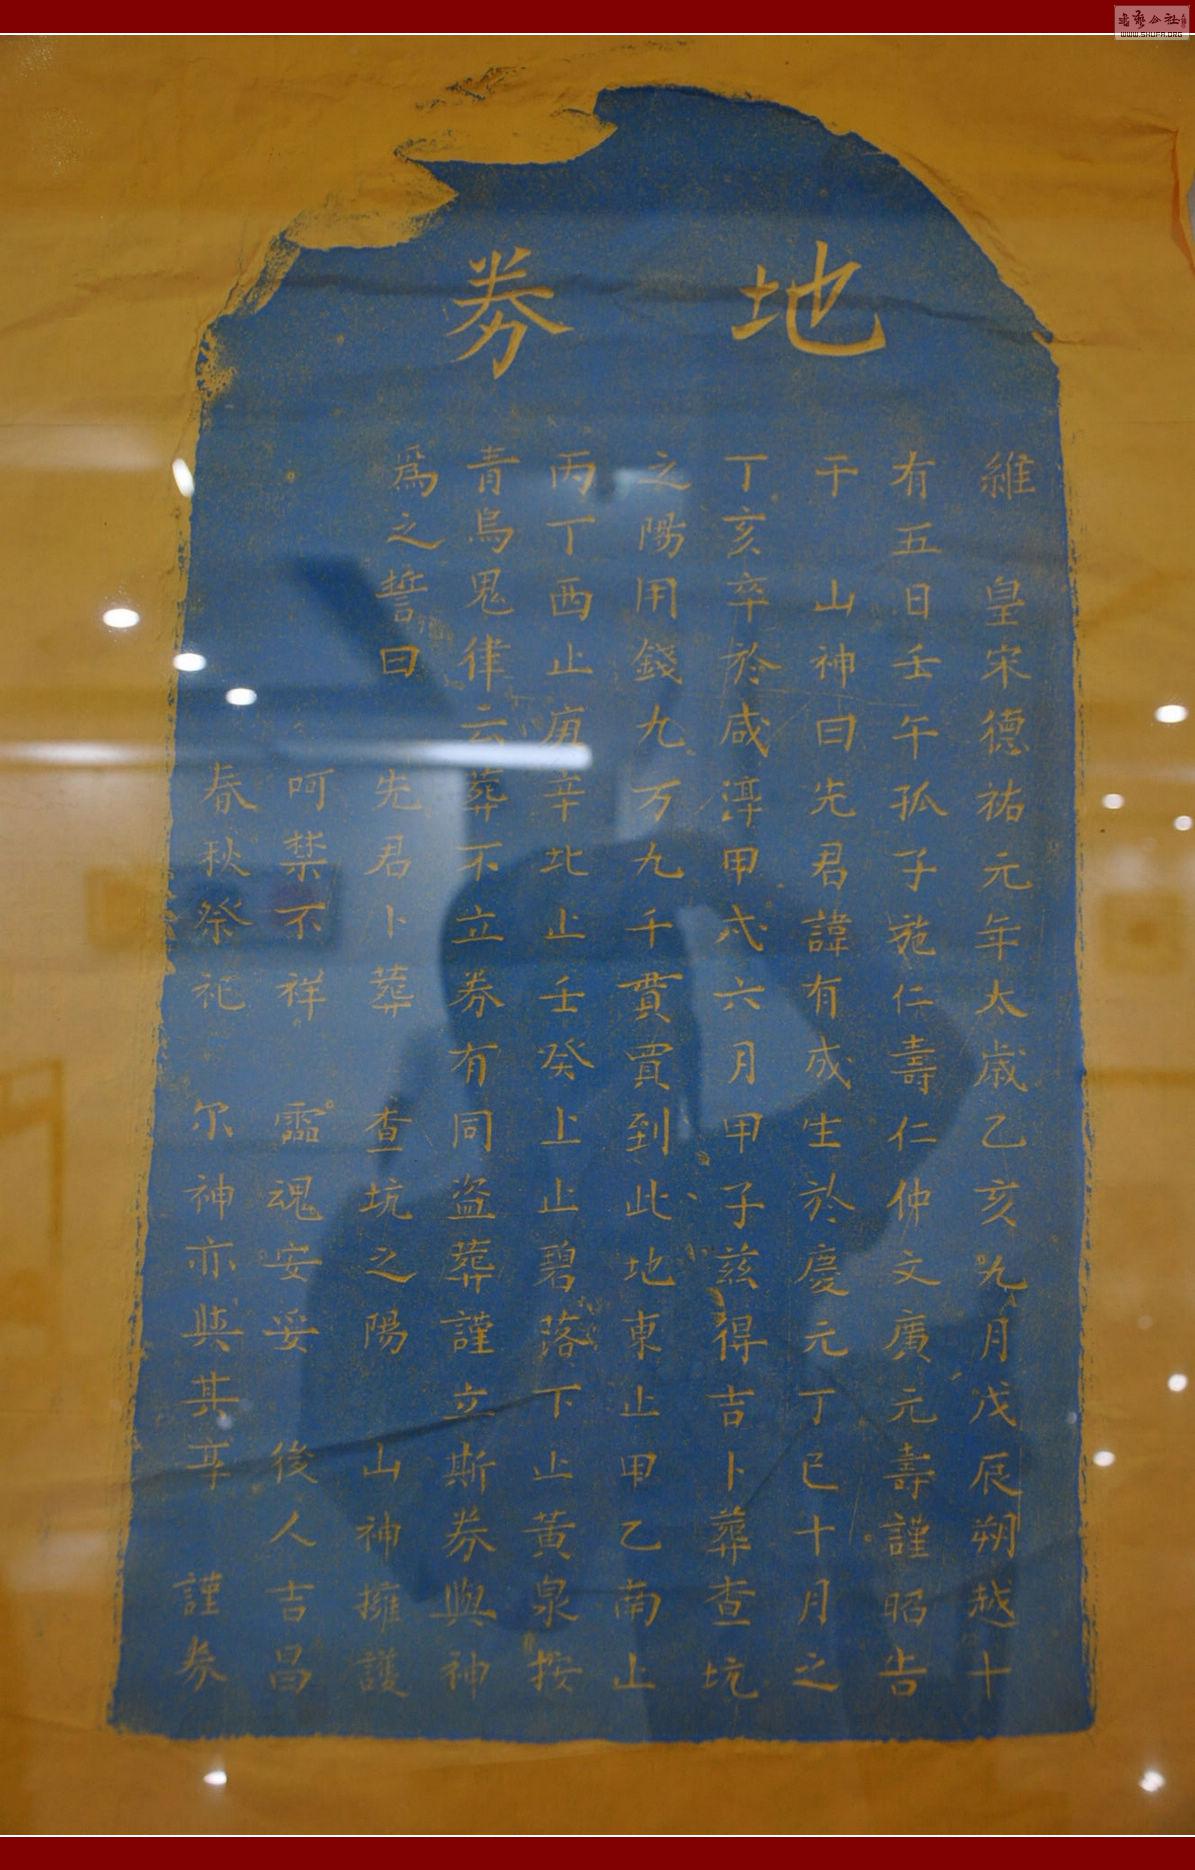 地券
維 皇宋德祐元年太歲乙亥九月戊辰朔越十
有五日壬午孤子施仁壽仁仲文廣元壽謹昭告
于 山神曰先君諱有成生於慶元丁巳十月之
丁亥卒於咸淳甲戌六月甲子兹得吉卜葬查坑
之陽用錢九万九千貫買到此地東止甲乙南止
丙丁西止庚辛北止壬癸上止碧落下止黃泉按
青烏鬼律云葬不立券有同盜葬謹立斯券與神
為之誓曰 先君卜葬 查坑之陽 山神擁護
呵禁不祥 靈魂安妥 後人吉昌
春秋祭祀 尔神亦與其享 謹券
書法公社
WWW.SHUFA.ORG